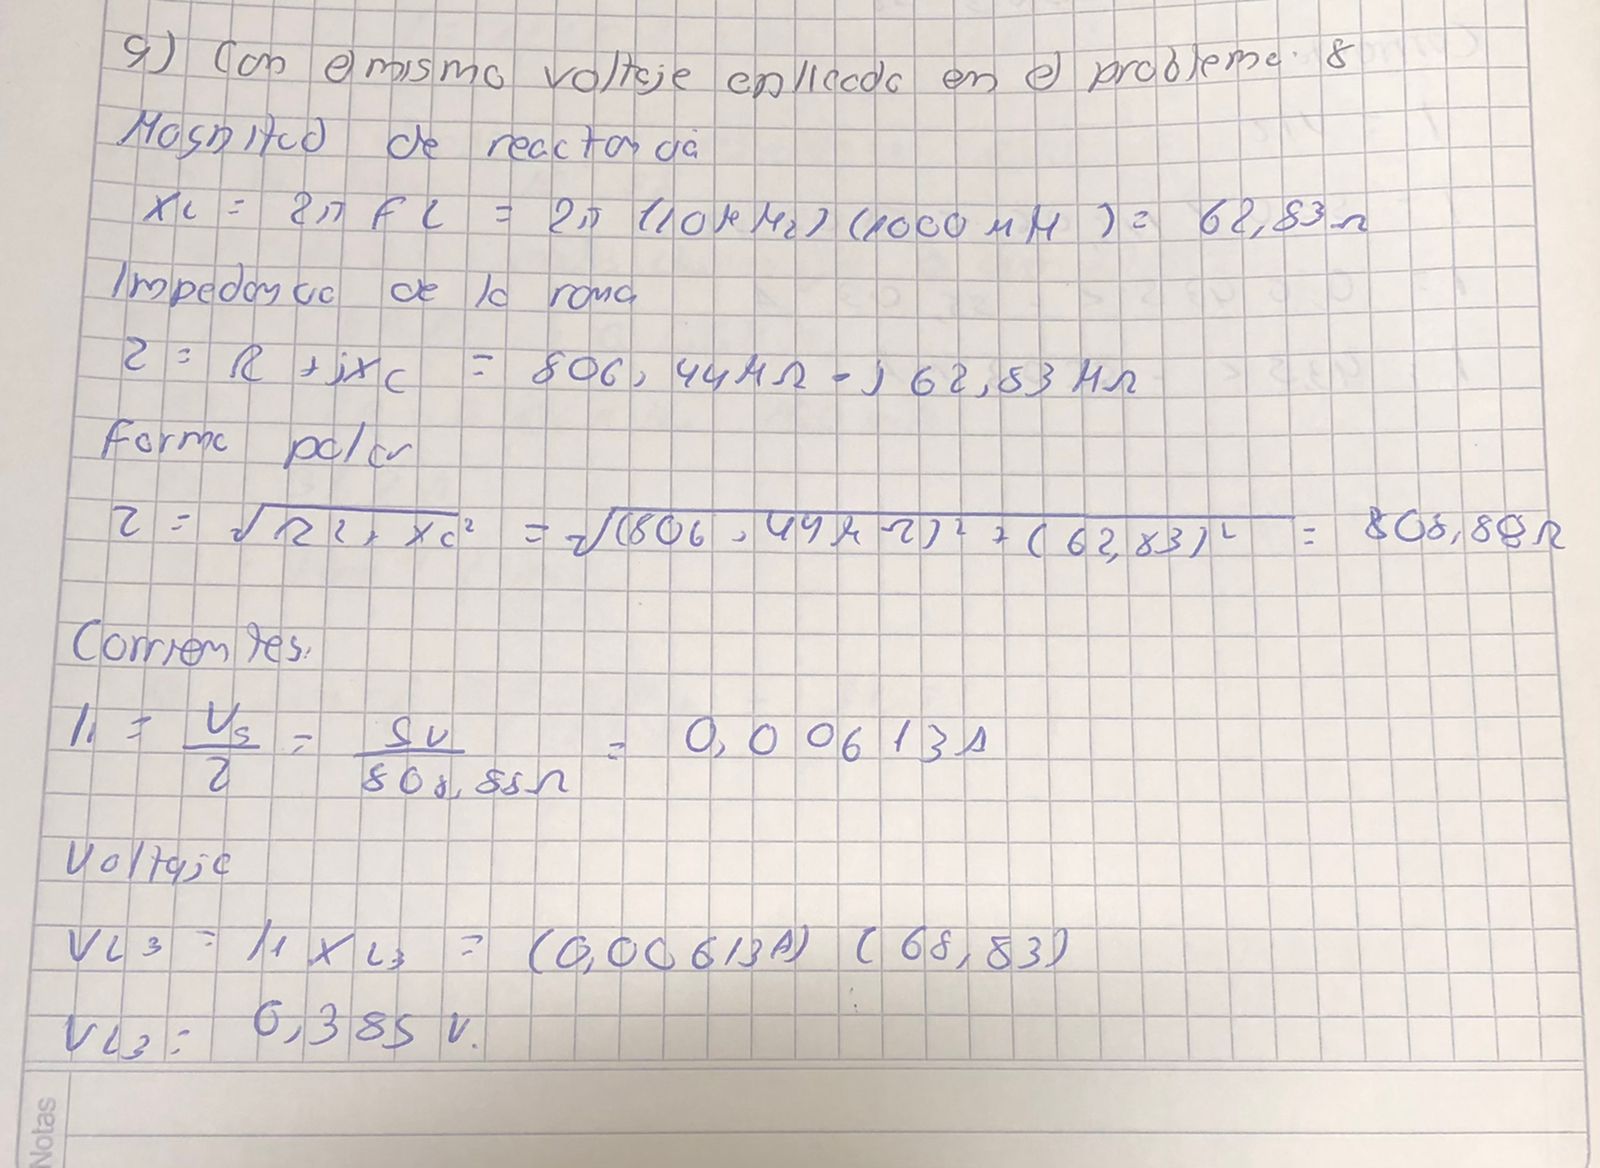 9) Con el mismo voltaje aplicado en el problema 8
Magnitud de reactancia
XL = 2π f L = 2π (10KHz) (1000 μH) = 62,83Ω
Impedancia de la rama
Z = R + jXC = 806,44MΩ - j 62,83 MΩ
Forma polar
Z = √R2 + Xc² = √(806,44MΩ)² + (62,83)² = 808,88Ω
Corrientes.
I1 = Vs/Z = 5V/808,88Ω = 0,00613A
Voltaje
VL3 = I1 XL3 = (0,00613A) (68,83)
VL3 = 0,385 V.
Notas